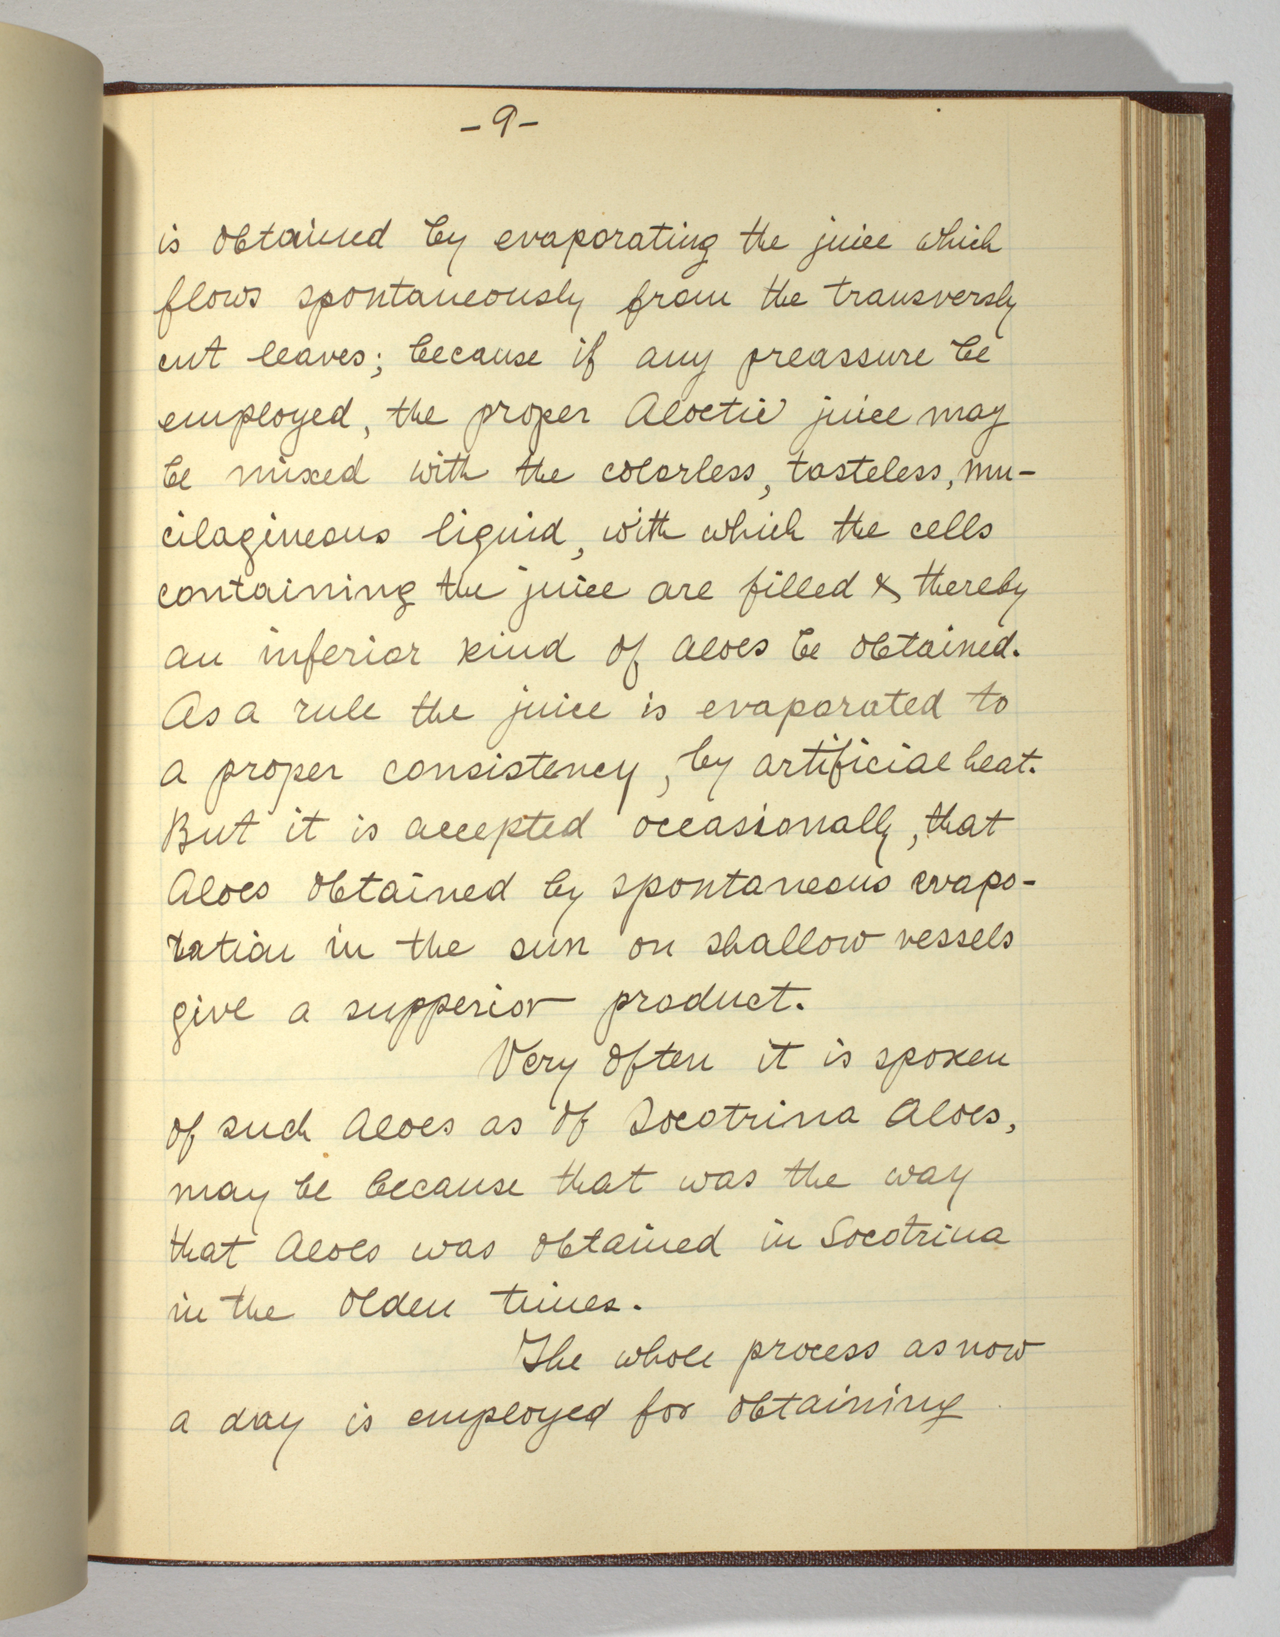 -9-
is obtained by evaporating the juice which
flows spontaneously from the transversly
cut leaves; because if any preassure be
employed, the proper Aloetic juice may
be mixed with the colorless, tasteless, mu-
cilagineous liquid, with which the cells
containing the juice are filled & thereby
an inferior kind of Aloes be obtained.
As a rule the juice is evaporated to
a proper consistency, by artificial heat.
But it is accepted occasionally, that
Aloes obtained by spontaneous evapo-
ration in the sun on shallow vessels
give a supperior product.
Very often it is spoken
of such Aloes as of Socotrina Aloes,
may be because that was the way
that Aloes was obtained in Socotrina
in the olden times.
The whole process as now
a day is employed for obtaining